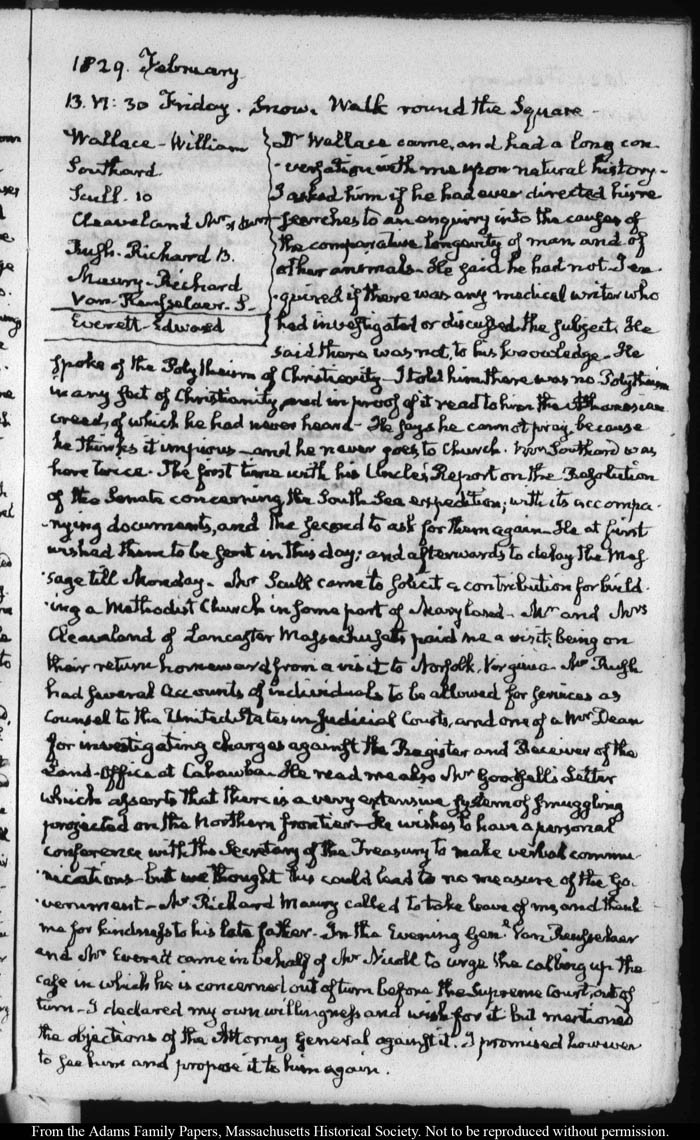 1829. February
13. VI: 30 Friday. Snow. Walk round the Square -
Wallace - William
Southard
Scull. 10
Cleaveland Mr &
Rush. Richard B.
Maury - Richard
Van Rensselaer. S-
Everett - Edward
Dr Wallace came, and had a long con-
-versation with me upon natural history-
I asked him if he had ever directed his re
-searches to an enquiry into the causes of
the comparative longevity of man and of
other animals- He said he had not. I en
-quired if there was any medical writer who
had investigated or discussed the subject. He
said there was not, to his knowledge- He
spoke of the Polytheism of Christianity- I told him there was no Polytheism
in any sect of Christianity, and in proof of it read to him the Athanasian
creed, of which he had never heard- He says he cannot pray because
he thinks it impious- and he never goes to Church. Southard was
here twice. The first time with his Uncle's Report on the Resolution
of the Senate concerning the South Sea expedition; with its accompa-
-nying documents, and the second to ask for them again- He at first
wished them to be sent in this day; and afterwards to delay the Mes
-sage till Monday- Mr Scull came to solicit a contribution for build
-ing a Methodist Church in some part of Maryland- Mr and Mrs
Cleaveland of Lancaster Massachusetts paid me a visit; being on
their return homeward from a visit to Norfolk, Virginia. Mr Rush
had several accounts of individuals to be allowed for services as
Counsel to the United States in Judicial Courts, and one of a Mr Dean
for investigating charges against the Register and Receiver of the
Land-Office at Cahawba- He read me also Mr Letter
which asserts that there is a very extensive system of smuggling
projected on the Northern frontier- He wishes to have a personal
conference with the Secretary of the Treasury to make verbal commu
-nications- but we thought this could lead to no measure of the Go-
-vernment- Mr Richard Maury called to take leave of me, and thank
me for kindness to his late father- In the Evening Genl. Van Rensselaer
and Mr Everett came in behalf of Mr Nicoll to urge the calling up the
case in which he is concerned out of turn before the Supreme Court, out of
turn- I declared my own willingness and wish for it but mentioned
the objections of the Attorney General against it. I promised however
to see him and propose it to him again.
From the Adams Family Papers, Massachusetts Historical Society. Not to be reproduced without permission.